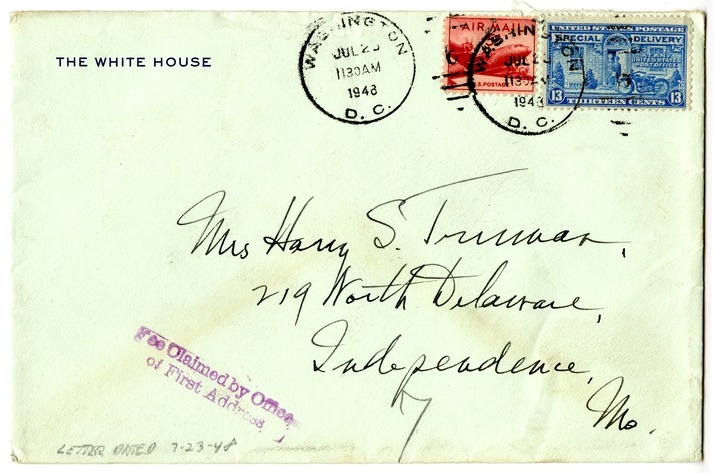 THE WHITE HOUSE
WASHINGTON
JUL 23
1130AM
1948
D. C.
AIR MAIL
U.S. POSTAGE
WASHINGTON
JUL 23
1130AM
1948
D. C.
UNITED STATES POSTAGE
SPECIAL DELIVERY
UNITED STATES
POST OFFICE
13 THIRTEEN CENTS 13
Mrs Harry S. Truman,
219 North Delaware,
Independence,
Mo.
Fee Claimed by Office
of First Address.
LETTER DATED 7-23-48